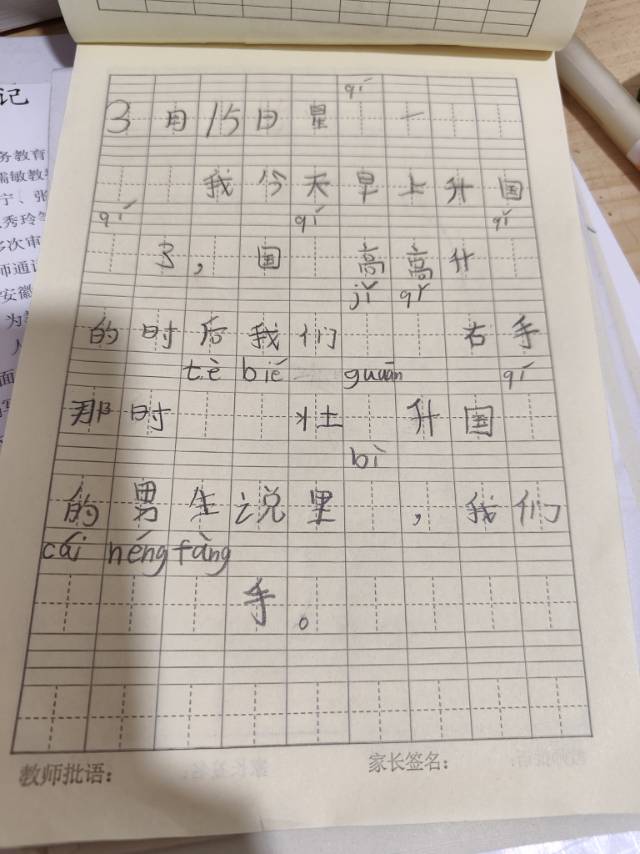 记
务教育
宁、张
秀玲等
多次审
安徽
qí
3月15日星 一
我今天早上升国
qí qí qí
了，国 高高升
jǔ qǐ
的时后我们 右手
tè bié guān qí
那时 壮 升国
bì
的男生说里 ，我们
cái néng fàng
手。
教师批语：
家长签名：